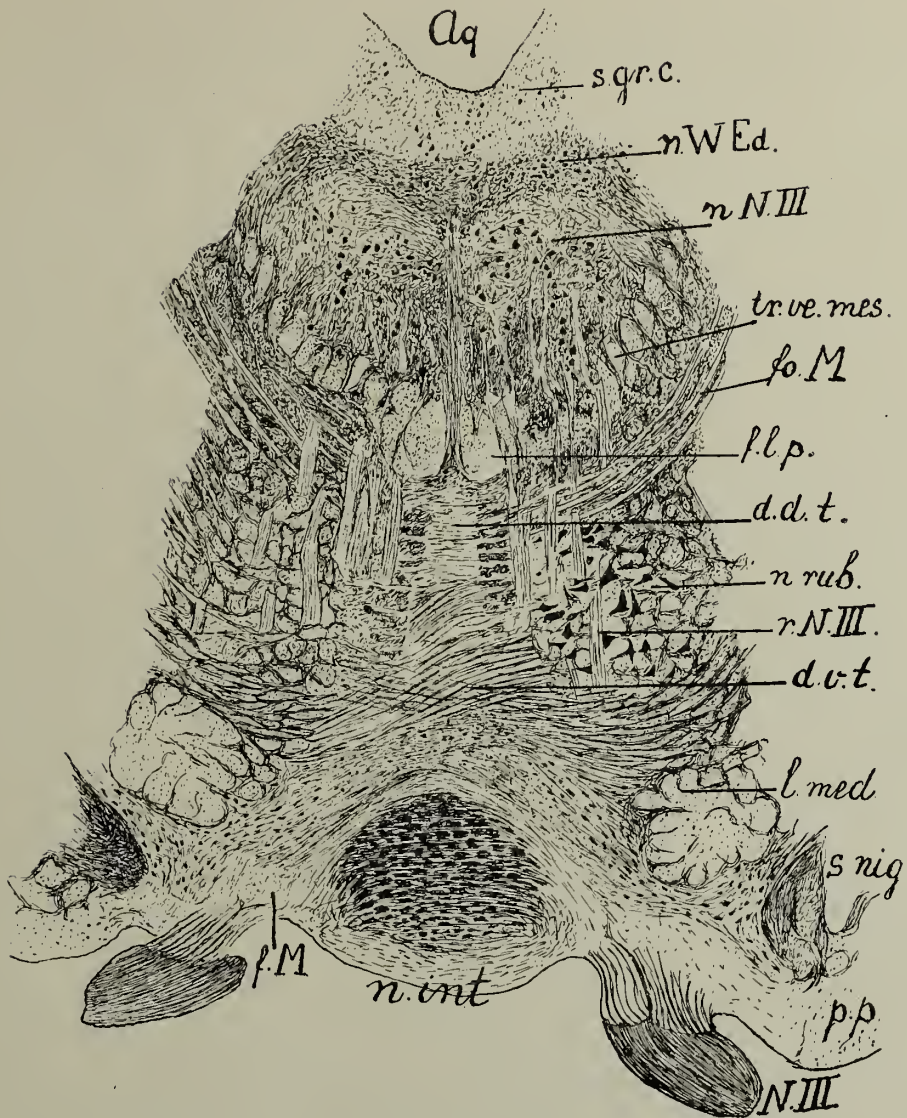 Aq
s.gr.c.
n.W Ed.
n N.III
tr.ve.mes.
fo.M
f.l.p.
d.d.t.
n rub.
r.N.III.
d.v.t.
l.med
s nig
f.M
n.int
p.p.
N.III